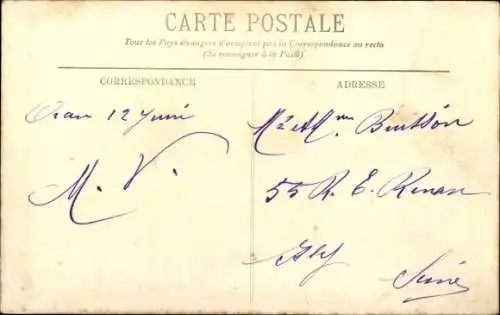 CARTE POSTALE
Tous les Pays étrangers n'acceptent pas la Correspondance au recto
(Se renseigner à la Poste)
CORRESPONDANCE
ADRESSE
Oran 12 Juin
M. V.
M. et Mme Buisson
55 R. E. Renan
Seine